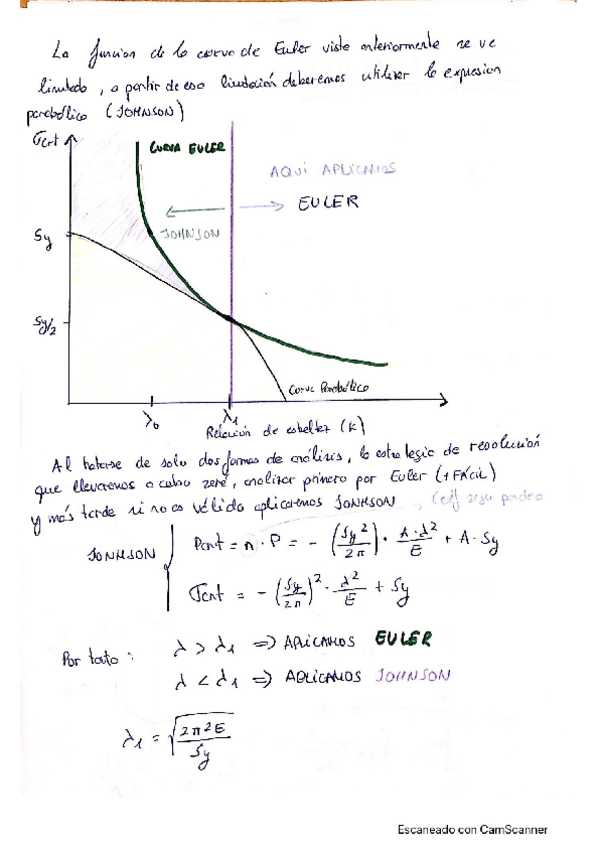 La funcion de la curva de Euler vista anteriormente se ve
limitada, a partir de esa limitación deberemos utilizar la expresion
parabólica (JOHNSON)
σcrt
CURVA EULER
AQUÍ APLICAMOS
EULER
JOHNSON
Sy
Sy/2
Curva Parabólica
λ₀
λ₁
Relación de esbeltez (k)
Al tratarse de solo dos formas de análisis, la estrategia de resolución
que llevaremos a cabo será, analizar primero por Euler (+FÁCIL)
y más tarde si no es válido aplicaremos JONHSON (coef) segu
JONHSON
Pcrit = n · P = - (Sy²/2π) · A·λ²/E + A · Sy
σcrit = - (Sy/2π)² · λ²/E + Sy
Por tanto : λ > λ₁ => APLICAMOS EULER
λ < λ₁ => APLICAMOS JOHNSON
λ₁ = √(2π²E/Sy)
Escaneado con CamScanner